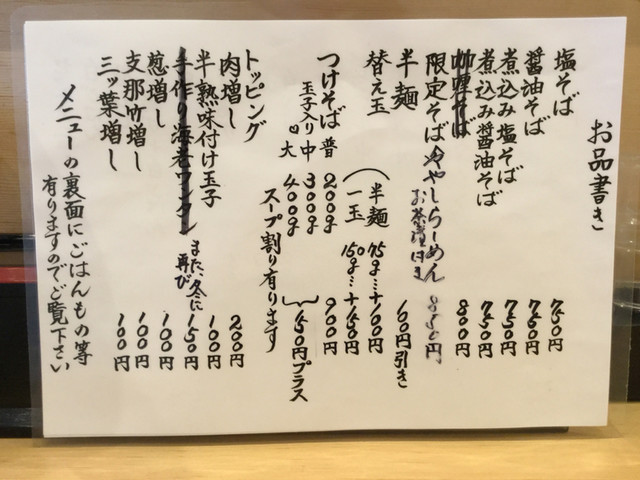 お品書き
塩そば 750円
醤油そば 750円
煮込み塩そば 750円
煮込み醤油そば 750円
咖喱そば 800円
限定そば 冷やしらーめん 850円
お茶漬け付き
半麺 60円引き
替え玉 (半麺 75g…+100円
一玉 150g…+150円
つけそば 普 200g 900円
玉子入り 中 300g
〃 大 400g } 150円プラス
スープ割り有ります
トッピング
肉増し 200円
半熟味付け玉子 100円
手作り海老ワンタン 150円
また、冬に再び
葱増し 100円
支那竹増し 100円
三ッ葉増し 100円
メニューの裏面にごはんもの等
有りますのでご覧下さい